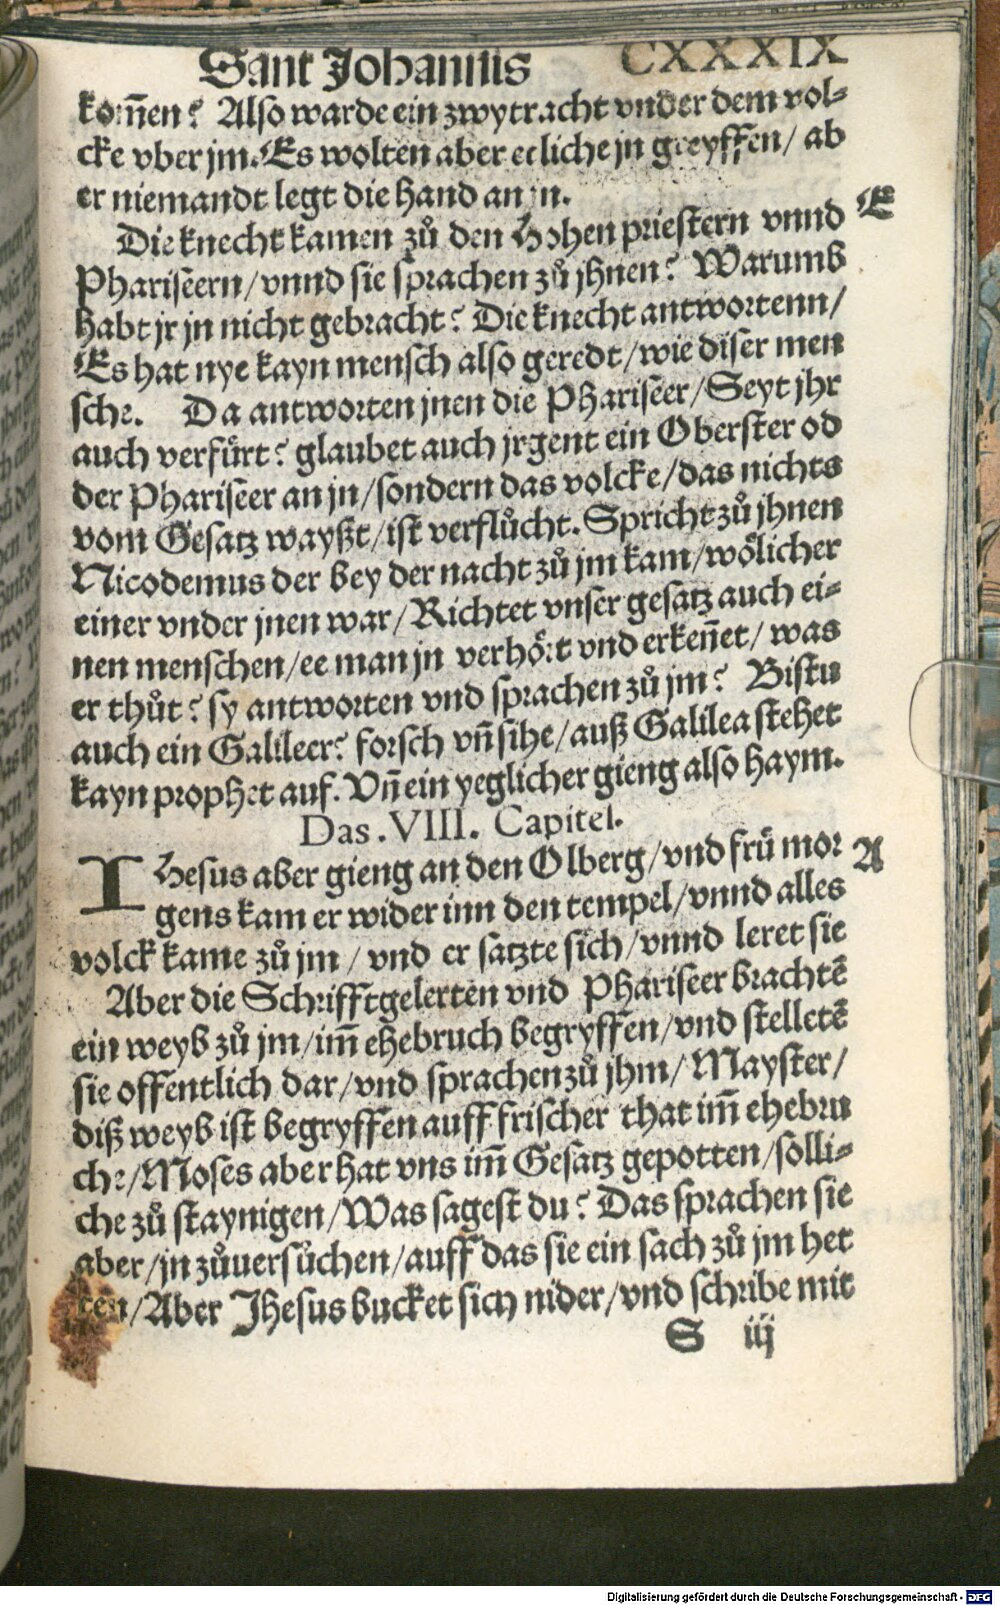 Sant Johannis CXXXIX
kom̃en? Also warde ein zwytracht vnder dem vol-
cke vber jm. Es wolten aber etliche jn greyffen/ ab
er niemandt legt die hand an jn.
Die knecht kamen zů den Hohen priestern vnnd E
Phariseern/vnnd sie sprachen zů jhnen? Warumb
habt jr jn nicht gebracht? Die knecht antwortenn/
Es hat nye kayn mensch also geredt/wie diser men
sche. Da antworten jnen die Phariseer/Seyt jhr
auch verfůrt? glaubet auch jrgent ein Oberster od
der Phariseer an jn/sondern das volcke/das nichts
vom Gesatz wayßt/ist verflůcht. Spricht zů jhnen
Nicodemus der bey der nacht zů jm kam/wölicher
einer vnder jnen war/Richtet vnser gesatz auch ei-
nen menschen/ee man jn verhört vnd erkeñet/ was
er thůt? sy antworten vnd sprachen zů jm? Bistu
auch ein Galileer? forsch vñ sihe/auß Galilea stehet
kayn prophet auf. Vñ ein yeglicher gieng also haym.
Das .VIII. Capitel.
IHesus aber gieng an den Olberg/vnd frů mor A
gens kam er wider inn den tempel/vnnd alles
volck kame zů jm / vnd er satzte sich/vnnd leret sie
Aber die Schrifftgelerten vnd Phariseer brachtē
ein weyb zů jm/im̃ ehebruch begryffen/vnd stelletē
sie offentlich dar/vnd sprachen zů jhm/ Mayster/
diß weyb ist begryffen auff frischer that im̃ ehebru
che/Moses aber hat vns im̃ Gesatz gepotten/solli-
che zů staynigen/Was sagest du? Das sprachen sie
aber/jn zůuersůchen/auff das sie ein sach zů jm het
ten/Aber Jhesus bucket sich nider/vnd schribe mit
S iij
Digitalisierung gefördert durch die Deutsche Forschungsgemeinschaft - DFG